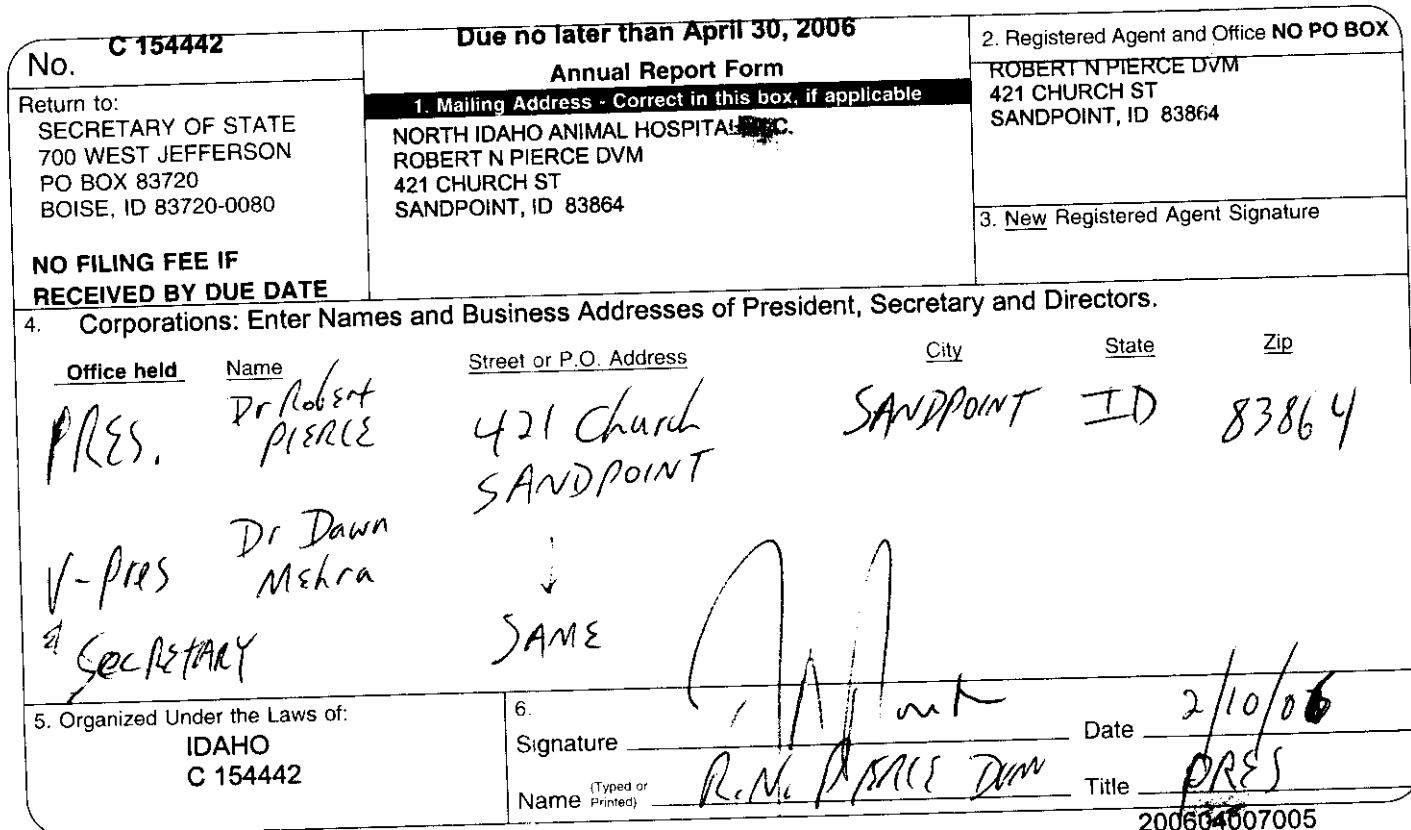 No. C 154442
Return to:
SECRETARY OF STATE
700 WEST JEFFERSON
PO BOX 83720
BOISE, ID 83720-0080
NO FILING FEE IF
RECEIVED BY DUE DATE
Due no later than April 30, 2006
Annual Report Form
1. Mailing Address - Correct in this box, if applicable
NORTH IDAHO ANIMAL HOSPITAL
ROBERT N PIERCE DVM
421 CHURCH ST
SANDPOINT, ID 83864
2. Registered Agent and Office NO PO BOX
ROBERT N PIERCE DVM
421 CHURCH ST
SANDPOINT, ID 83864
3. New Registered Agent Signature
4. Corporations: Enter Names and Business Addresses of President, Secretary and Directors.
Office held Name Street or P.O. Address City State Zip
PRES. Dr Robert PIERCE 421 Church SANDPOINT ID 83864
SANDPOINT
V-Pres Dr Dawn Mehra ↓
& SECRETARY SAME
5. Organized Under the Laws of:
IDAHO
C 154442
6.
Signature Date 2/10/06
Name (Typed or Printed) R.N. PIERCE DVM Title PRES
200604007005